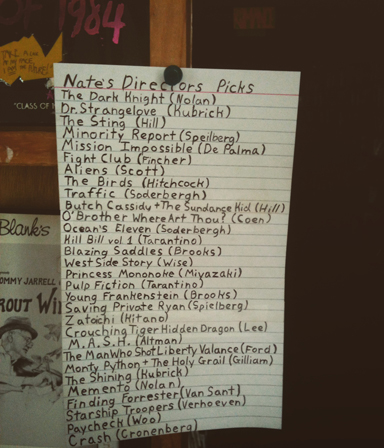 OF 1984
"CLASS OF
Nate's Directors Picks
The Dark Knight (Nolan)
Dr. Strangelove (Kubrick)
The Sting (Hill)
Minority Report (Speilberg)
Mission Impossible (De Palma)
Fight Club (Fincher)
Aliens (Scott)
The Birds (Hitchcock)
Traffic (Soderbergh)
Butch Cassidy + The Sundance Kid (Hill)
O'Brother Where Art Thou? (Coen)
Ocean's Eleven (Soderbergh)
Kill Bill vol 1 (Tarantino)
Blazing Saddles (Brooks)
West Side Story (Wise)
Princess Mononoke (Miyazaki)
Pulp Fiction (Tarantino)
Young Frankenstein (Brooks)
Saving Private Ryan (Spielberg)
Zatoichi (Kitano)
Crouching Tiger Hidden Dragon (Lee)
M.A.S.H. (Altman)
The Man Who Shot Liberty Valance (Ford)
Monty Python + The Holy Grail (Gilliam)
The Shining (Kubrick)
Memento (Nolan)
Finding Forrester (Van Sant)
Starship Troopers (Verhoeven)
Paycheck (Woo)
Crash (Cronenberg)
Blank's
OMMY JARRELL
ROUT WI